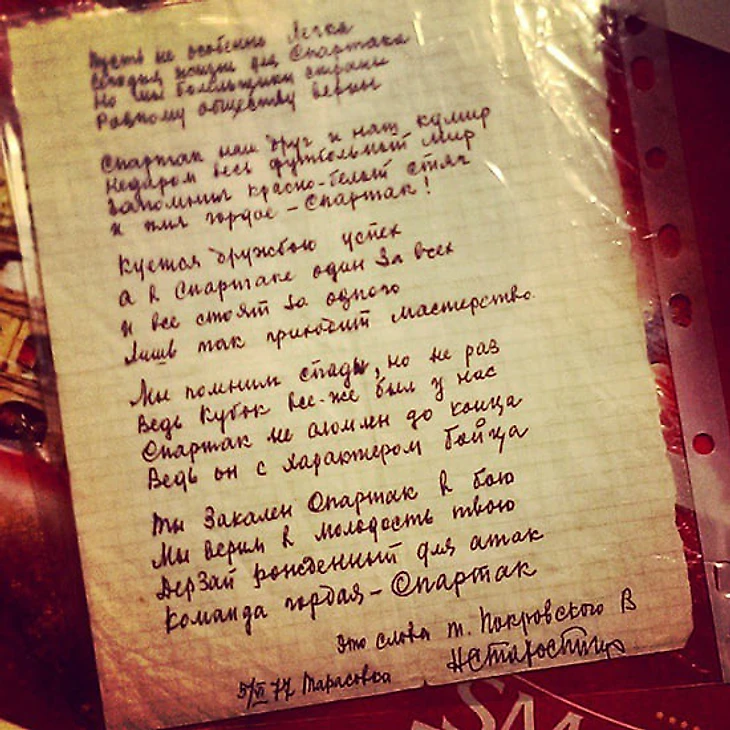 Пусть не особенно легка
Сегодня жизнь для Спартака
Но мы болельщики страны
Родному обществу верны
Спартак наш друг и наш кумир
Недаром весь футбольный мир
Запомнил красно-белый стяг
и имя гордое - Спартак!
Куется дружбою успех
а в Спартаке один за всех
и все стоят за одного
Лишь так приходит мастерство.
Мы помним спады, но не раз
Ведь Кубок все-же был у нас
Спартак не сломлен до конца
Ведь он с характером бойца
Ты закален Спартак в бою
Мы верим в молодость твою
Дерзай рожденный для атак
Команда гордая - Спартак
Это слова т. Покровского В
НСтаростин
5/VI 77 Тарасовка
SM